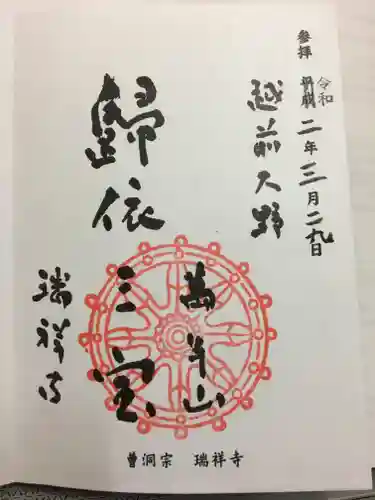 参拝
令和
平成
二年三月二九日
越前大野
萬年山
歸依
三宝
瑞祥寺
曹洞宗 瑞祥寺